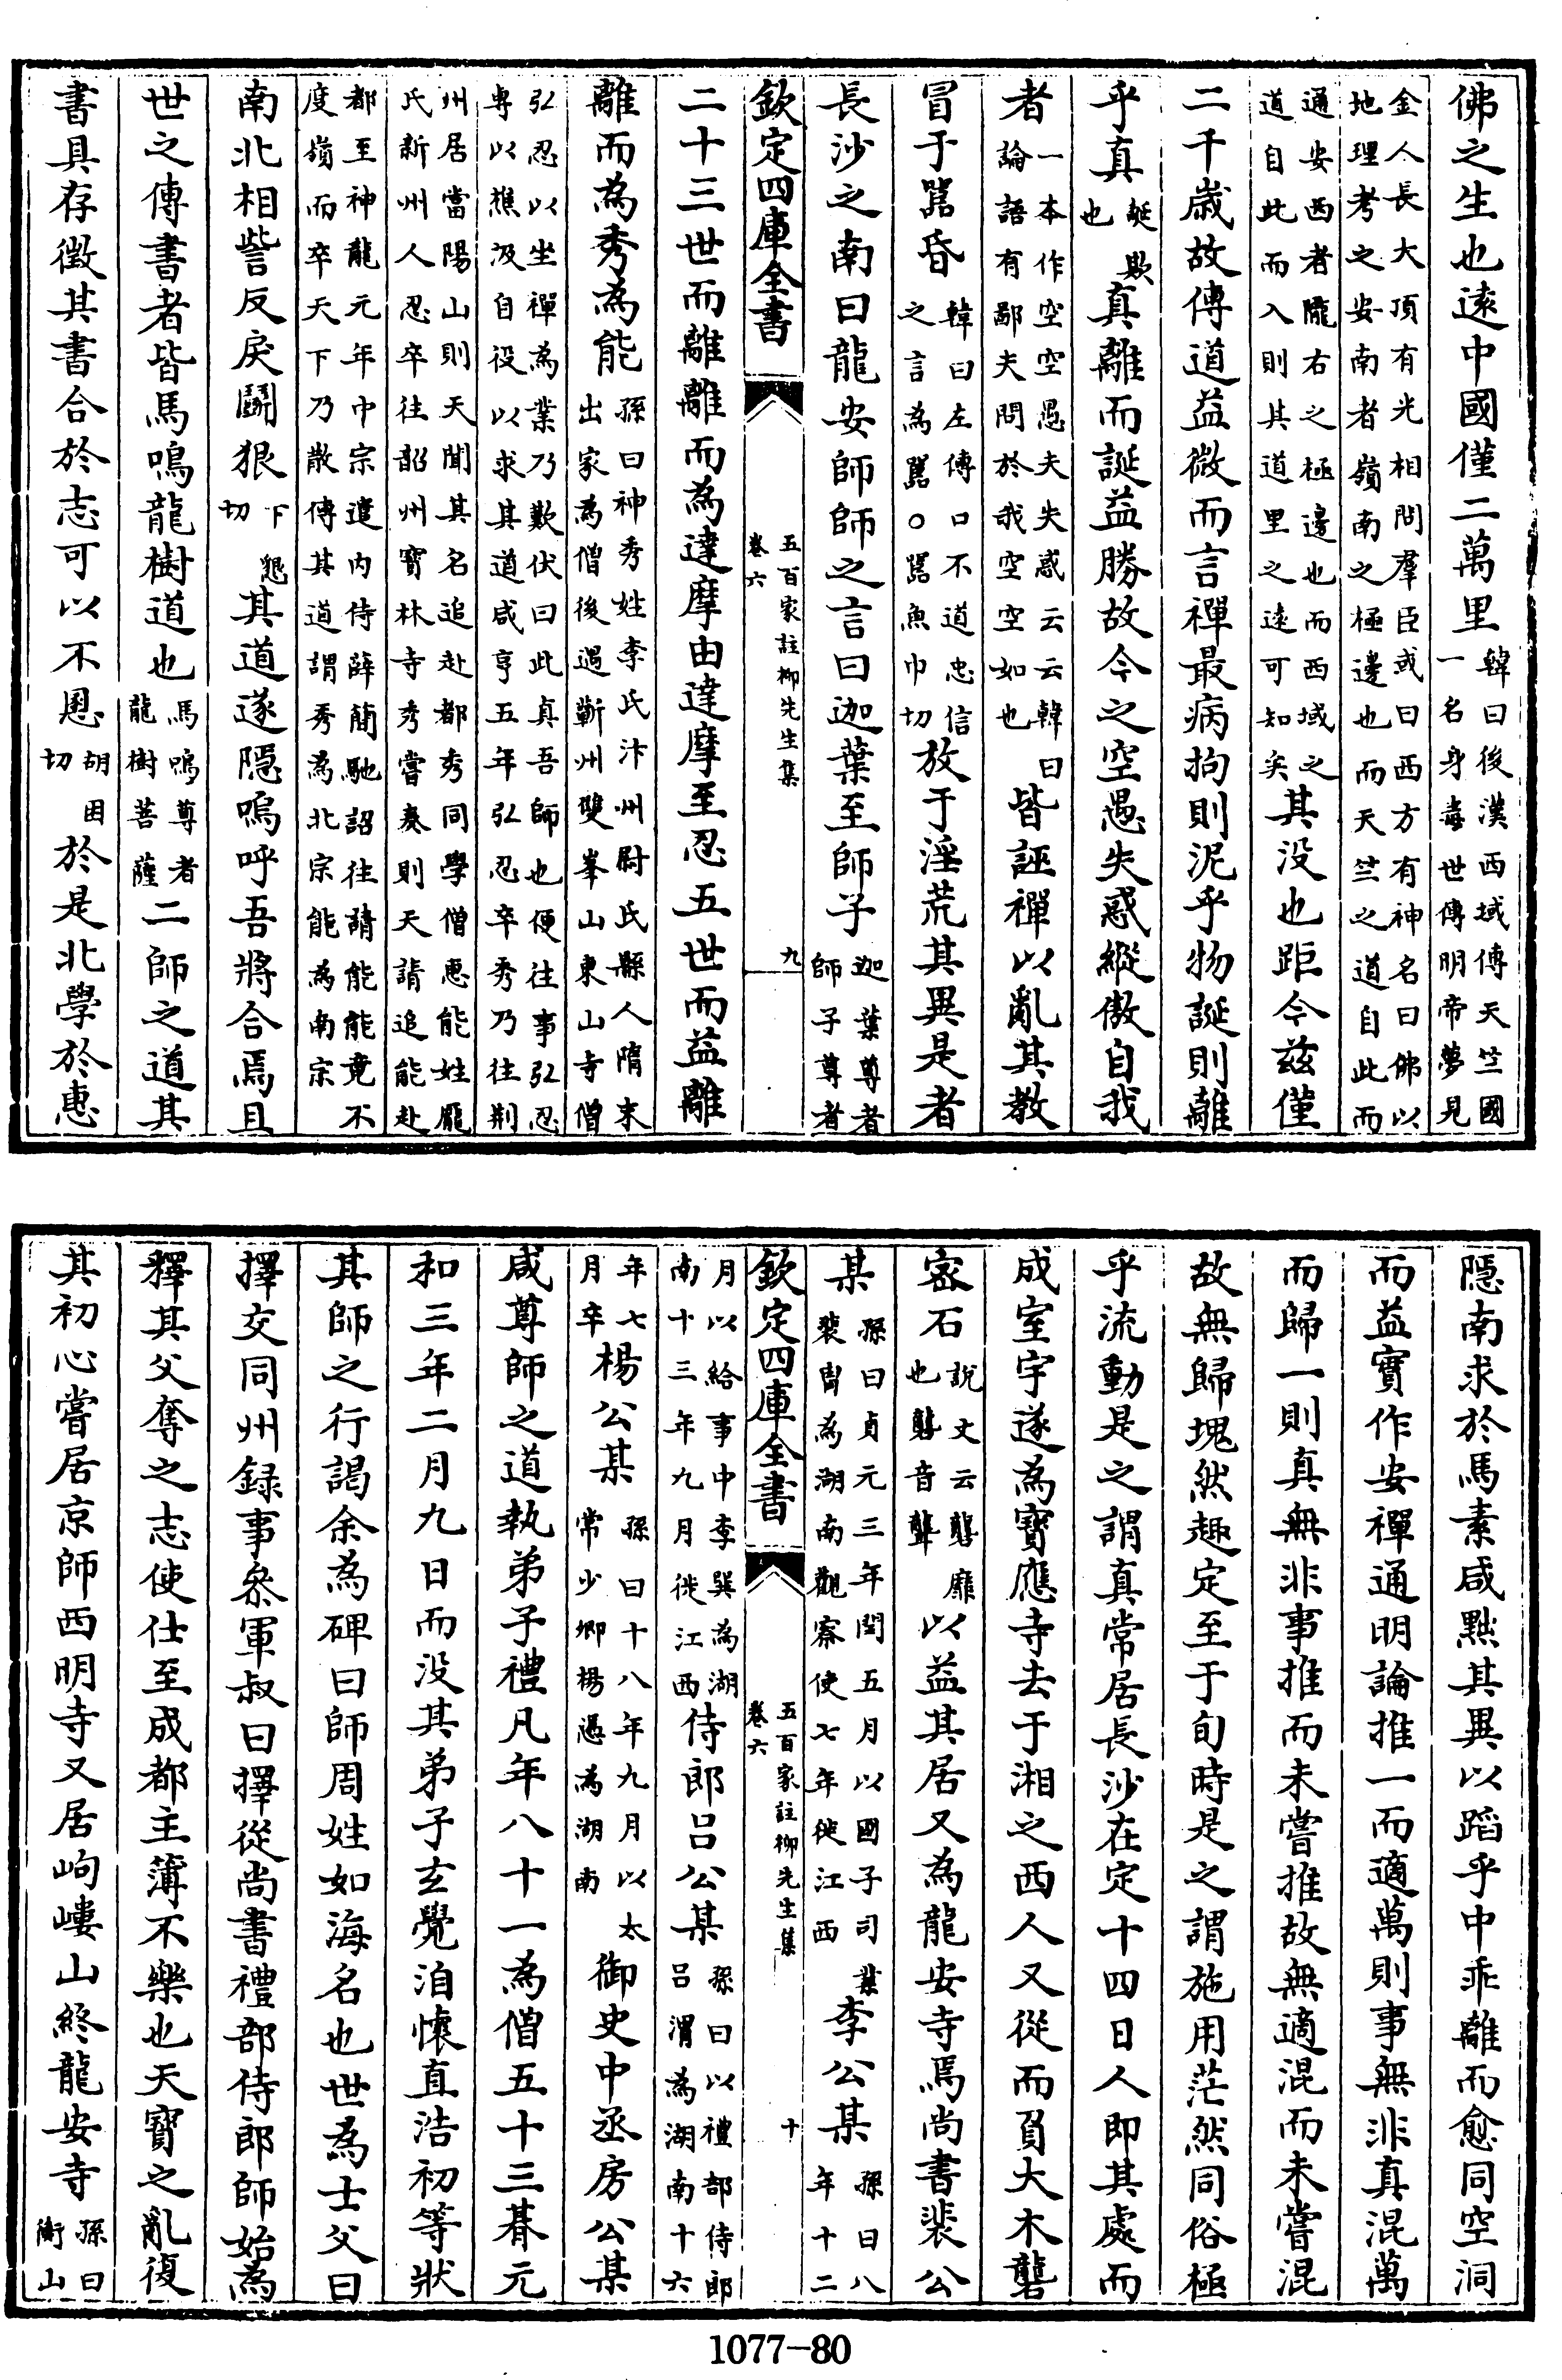 佛之生也遠中國僅二萬里韓曰後漢西域傳天竺國一名身毒世傳明帝夢見
金人長大頂有光相問羣臣或曰西方有神名曰佛以地理考之安南者嶺南之極邊也而天竺之道自此而
通安西者隴右之極邊也而西域之道自此而入則其道里之遠可知矣其没也距今茲僅
二千歲故傳道益微而言禪最病拘則泥乎物誕則離
乎真誕欺也真離而誕益勝故今之空愚失惑縱傲自我
者一本作空空愚夫失惑云云韓曰論語有鄙夫問於我空空如也皆誣禪以亂其教
冒于嚚昏韓曰左傳口不道忠信之言為嚚○嚚魚巾切放于淫荒其異是者
長沙之南曰龍安師師之言曰迦葉至師子迦葉尊者師子尊者
欽定四庫全書
五百家註柳先生集
卷六
九
二十三世而離離而為達摩由達摩至忍五世而益離
離而為秀為能孫曰神秀姓李氏汴州尉氏縣人隋末出家為僧後遇蘄州雙峯山東山寺僧
弘忍以坐禪為業乃歎伏曰此真吾師也便往事弘忍專以樵汲自役以求其道咸亨五年弘忍卒秀乃往荆
州居當陽山則天聞其名追赴都秀同學僧惠能姓盧氏新州人忍卒往韶州寶林寺秀嘗奏則天請追能赴
都至神龍元年中宗遣内侍薛簡馳詔往請能能竟不度嶺而卒天下乃散傳其道謂秀為北宗能為南宗
南北相訾反戾鬭狠下懇切其道遂隱嗚呼吾將合焉且
世之傳書者皆馬鳴龍樹道也馬鳴尊者龍樹菩薩二師之道其
書具存徵其書合於志可以不慁胡困切於是北學於惠
隱南求於馬素咸黜其異以蹈乎中乖離而愈同空洞
而益實作安禪通明論推一而適萬則事無非真混萬
而歸一則真無非事推而未嘗推故無適混而未嘗混
故無歸塊然趣定至于旬時是之謂施用茫然同俗極
乎流動是之謂真常居長沙在定十四日人即其處而
成室宇遂為寶應寺去于湘之西人又從而負大木礱
密石説文云礱䃺也礱音聾以益其居又為龍安寺焉尚書裴公
某孫曰貞元三年閏五月以國子司業裴胄為湖南觀察使七年徙江西李公某孫曰八年十二
欽定四庫全書
五百家註柳先生集
卷六
十
月以給事中李巽為湖南十三年九月徙江西侍郎吕公某孫曰以禮部侍郎吕渭為湖南十六
年七月卒楊公某孫曰十八年九月以太常少卿楊憑為湖南御史中丞房公某
咸尊師之道執弟子禮凡年八十一為僧五十三朞元
和三年二月九日而没其弟子玄覺洎懷直浩初等狀
其師之行謁余為碑曰師周姓如海名也世為士父曰
擇交同州録事叅軍叔曰擇從尚書禮部侍郎師始為
釋其父奪之志使仕至成都主簿不樂也天寶之亂復
其初心嘗居京師西明寺又居岣嶁山終龍安寺孫曰衡山
1077-80